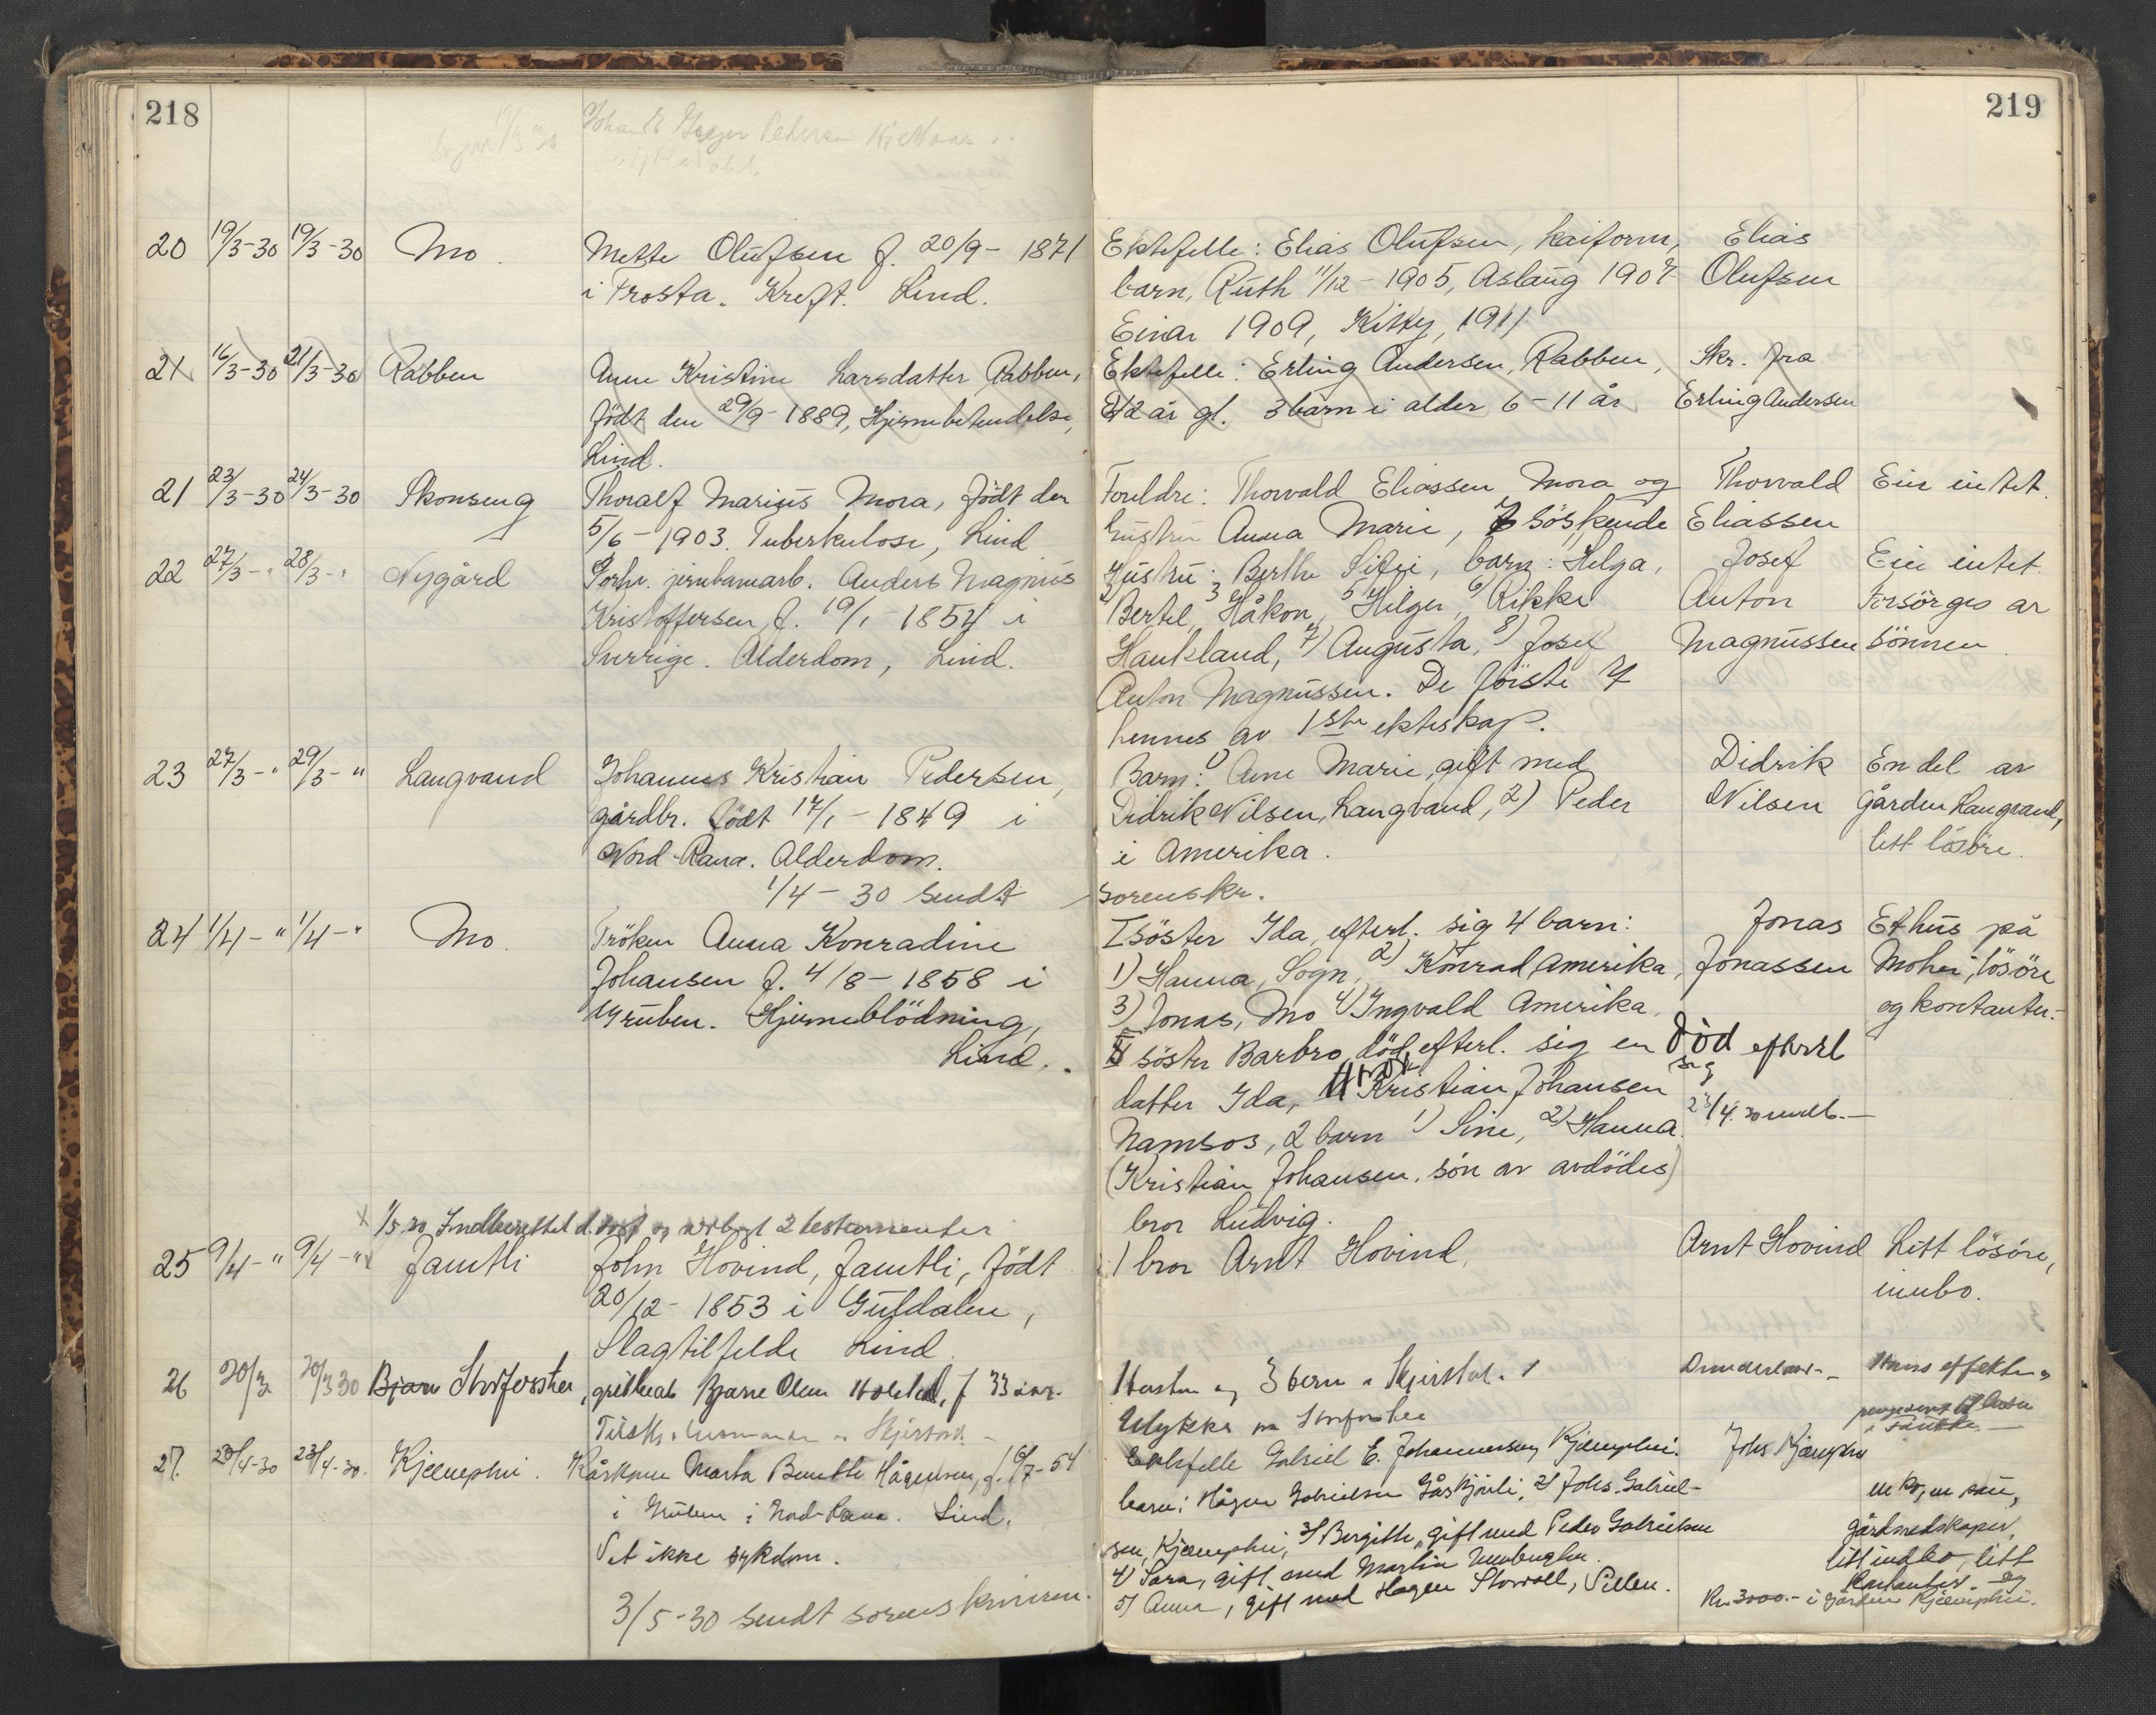 218
219
Johan
Pedersen
20 19/3-30 19/3-30 Mo. Mette Olufsen f. 20/9 - 1871
i Frosta. Kreft. Lind.
Ektefelle: Elias Olufsen, kaiform,
barn, Ruth 11/12 - 1905, Aslaug 1907
Einar 1909, Kitty, 1911
Elias
Olufsen
21 16/3-30 21/3-30 Rabben Anne Kristine Larsdatter Rabben,
født den 29/9 - 1889, Hjernebetendelse,
Lind.
Ektefelle: Erling Andersen, Rabben,
42 år gl. 3 barn i alder 6-11 år
Skr. fra
Erling Andersen
21 23/3-30 24/3-30 Skonseng Thoralf Marius Mora, født den
5/6 - 1903. Tuberkulose, Lind
Foreldre: Thorvald Eliassen Mora og
hustru Anna Marie, 7 søskende
Thorvald
Eliassen
Eier intet.
22 27/3-" 28/3-" Nygård Forhv. jernbanearb. Anders Magnus
Kristoffersen, f. 19/1 - 1854 i
Sverrige. Alderdom, Lind.
Hustru: Berthe Sifri, barn: Helga,
2) Bertel, 3 Håkon, 5 Hilger, 6) Rikke
Haukland, 7) Augusta, 8) Josef
Anton Magnussen. De første 7
hennes av 1ste ekteskap.
Josef
Anton
Magnussen
Eier intet.
Forsörges av
sönnen.
23 27/3-" 29/3-" Langvand Johannes Kristian Pedersen,
gårdbr. født 17/1 - 1849 i
Nord-Rana. Alderdom.
1/4 - 30 sendt sorenskr.
Barn: 1) Anne Marie, gift med
Didrik Nilsen, Langvand, 2) Peder
i Amerika.
Didrik
Nilsen
En del av
gården Langvand,
litt lösöre.
24 1/4-" 1/4-" Mo. Fröken Anna Konradine
Johansen f. 4/8 - 1858 i
Gruben. Hjerneblödning,
Lind.
I söster Ida, efterl. sig 4 barn:
1) Hanna, Sogn, 2) Konrad, Amerika,
3) Jonas, Mo 4) Ingvald Amerika.
II söster Barbro, död, efterl. sig en
datter Ida, Kristian Johansen
Namsos, 2 barn 1) Sine, 2) Hanna.
(Kristian Johansen, sön av avdödes)
bror Ludvig.
Död efterl
sig
Jonas
Jonassen
Et hus på
Mohei, lösöre
og kontanter.
x 1/5 30 Indberettet d. 2 testamenter
25 9/4-" 9/4-" x Jamtli John Hovind, Jamtli, født
20/12 - 1853 i Guldalen,
Slagtilfelde Lind.
1 bror Arnt Hovind,
Arnt Hovind
Litt lösöre,
innbo.
26 20/3 20/3 30 Bjarne Storforshei, Bjarne Olsen f 33 år.
Hustru og 3 barn
Ulykke på Storforshei
Dunderland
Hans effekter
27. 20/4-30 23/4-30. Kjemphei. Kårkone Marta Benette Hågensen, f. 16/7-54
i Gruben i Nord-Rana. Lind.
Vet ikke sykdom.
3/5-30 sendt sorenskriveren.
Ektefelle Gabriel E. Johannessen, Kjemphei.
barn: Hågen Gabrielsen Gåskjönli, 2) Johs. Gabriel-
sen, Kjemphei, 3) Bergitte, gift med Peder Gabrielsen
4) Sara, gift med Martin
5) Anna, gift med Hagen Storvoll, Selden.
Johs Kjemphei
en ko, en sau,
gårdredskaper,
litt indbo, litt
kontanter. og
Kr. 3000.- i gården Kjemphei.